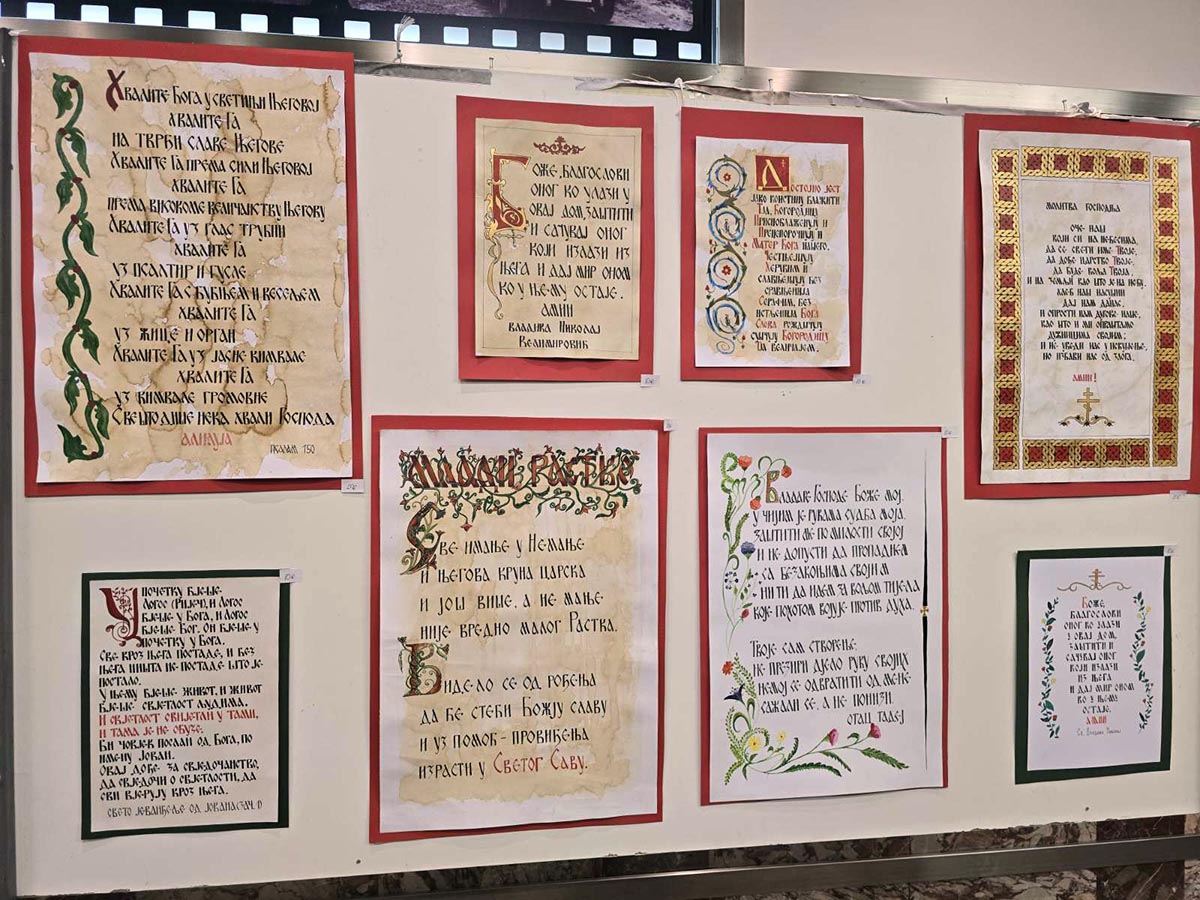 Хвалите Бога у светињи Његовој
хвалите Га
на тврђи славе Његове
Хвалите Га према сили Његовој
хвалите Га
према високоме величанству Његову
Хвалите Га уз глас трубни
хвалите Га
уз псалтир и гусле
Хвалите Га с бубњем и весељем
хвалите Га
уз жице и орган
Хвалите Га уз јасне кимвале
хвалите Га
уз кимвале громовне
Све што дише нека хвали Господа
алилуја
псалам 150
Боже, благослови
оног ко улази у
овај дом, заштити
и сачувај оног
који излази из
њега и дај мир оном
ко у њему остаје.
амин
Владика Николај
Велимировић
Достојно јест
јако воистину блажити
Тја, Богородицу
Присноблаженују и
Пренепорочнују и
Матер Бога нашего.
Честњејшују
Херувим и
славњејшују без
сравњенија
Серафим, без
истљенија Бога
Слова рождшују
сушчују Богородицу
Тја величајем.
Молитва Господња
Оче наш
који си на небесима,
да се свети име Твоје,
да дође царство Твоје,
да буде воља Твоја,
и на земљи као што је на небу,
хлеб наш насушни
дај нам данас,
и опрости нам дугове наше,
као што и ми опраштамо
дужницима својим;
и не уведи нас у искушење,
но избави нас од злога.
амин!
Млади Растке
Све имање у Немање
и његова круна царска
и још више, а не мање
није вредно малог Растка.
Видело се од рођења
да ће стећи Божју славу
и уз помоћ провиђења
израсти у Светог Саву.
Владаре Господе Боже мој,
у чијим је рукама судба моја.
заштити ме по милости својој
и не допусти да пропаднем
са безакоњима својим
нити да идем за вољом тијела
које похотом војује против духа.
Твоје сам створење.
не презири дјело руку својих
немој се одвратити од мене
сажали се, а не понизи.
отац Тадеј
У почетку бјеше
Логос (Ријеч), и Логос
бјеше у Бога, и Логос
бјеше Бог. Он бјеше у
почетку у Бога.
Све кроз њега постаде, и без
њега ништа не постаде што је
постало.
У њему бјеше живот, и живот
бјеше свјетлост људима.
и свјетлост свијетли у тами,
и тама је не обузе.
Би човјек послан од Бога, по
имену Јован.
Овај дође за свједочанство,
да свједочи о свјетлости, да
сви вјерују кроз њега.
Свето јеванђеље од Јована
Боже,
благослови
оног ко улази
у овај дом,
заштити и
сачувај оног
који излази
из њега
и дај мир оном
ко у њему
остаје.
амин
Св. Владика Николај